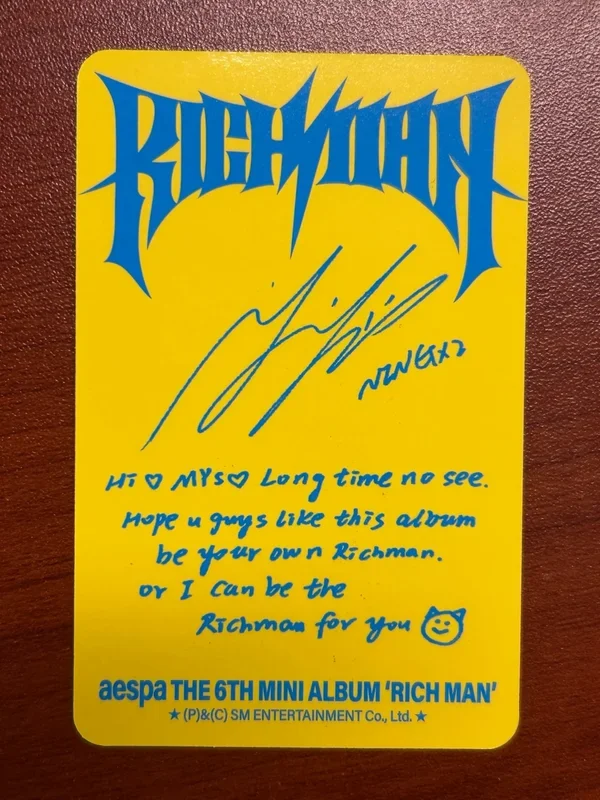 RICH MAN
NINGX2
Hi ♡ MYs♡ Long time no see.
Hope u guys like this album
be your own Richman.
or I can be the
Richman for you
aespa THE 6TH MINI ALBUM 'RICH MAN'
★ (P)&(C) SM ENTERTAINMENT Co., Ltd. ★